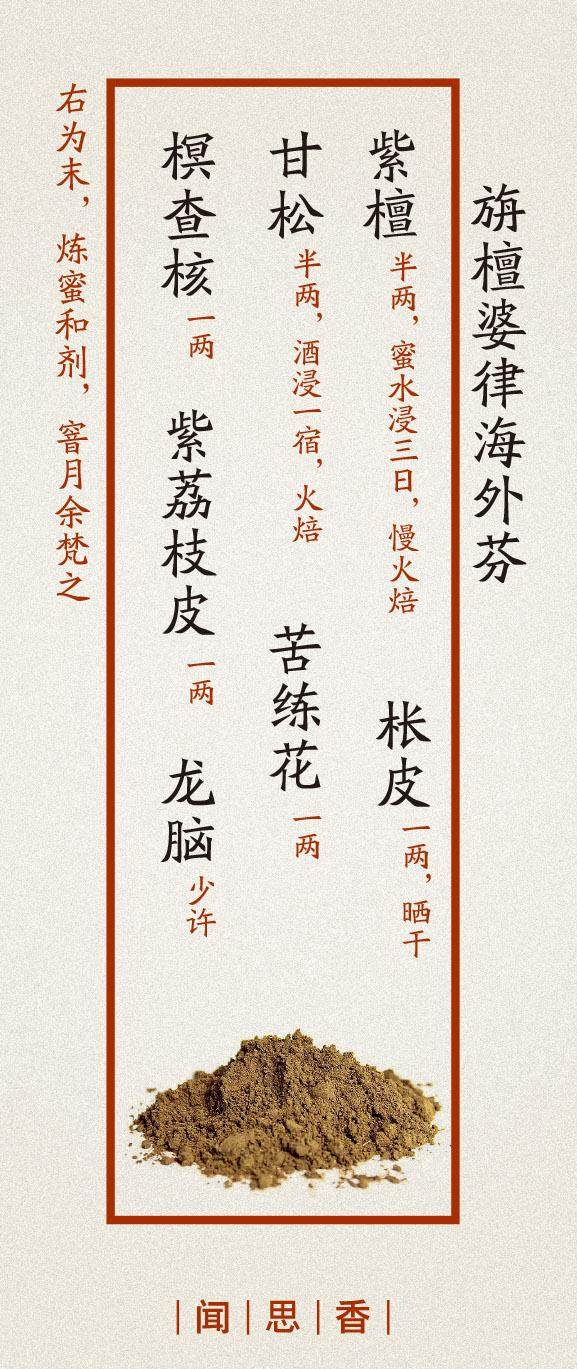 旃檀婆律海外芬
紫檀 半两，蜜水浸三日，慢火焙 枨皮 一两，晒干
甘松 半两，酒浸一宿，火焙 苦练花 一两
榠查核 一两 紫荔枝皮 一两 龙脑 少许
右为末，炼蜜和剂，窨月余梵之
|闻|思|香|